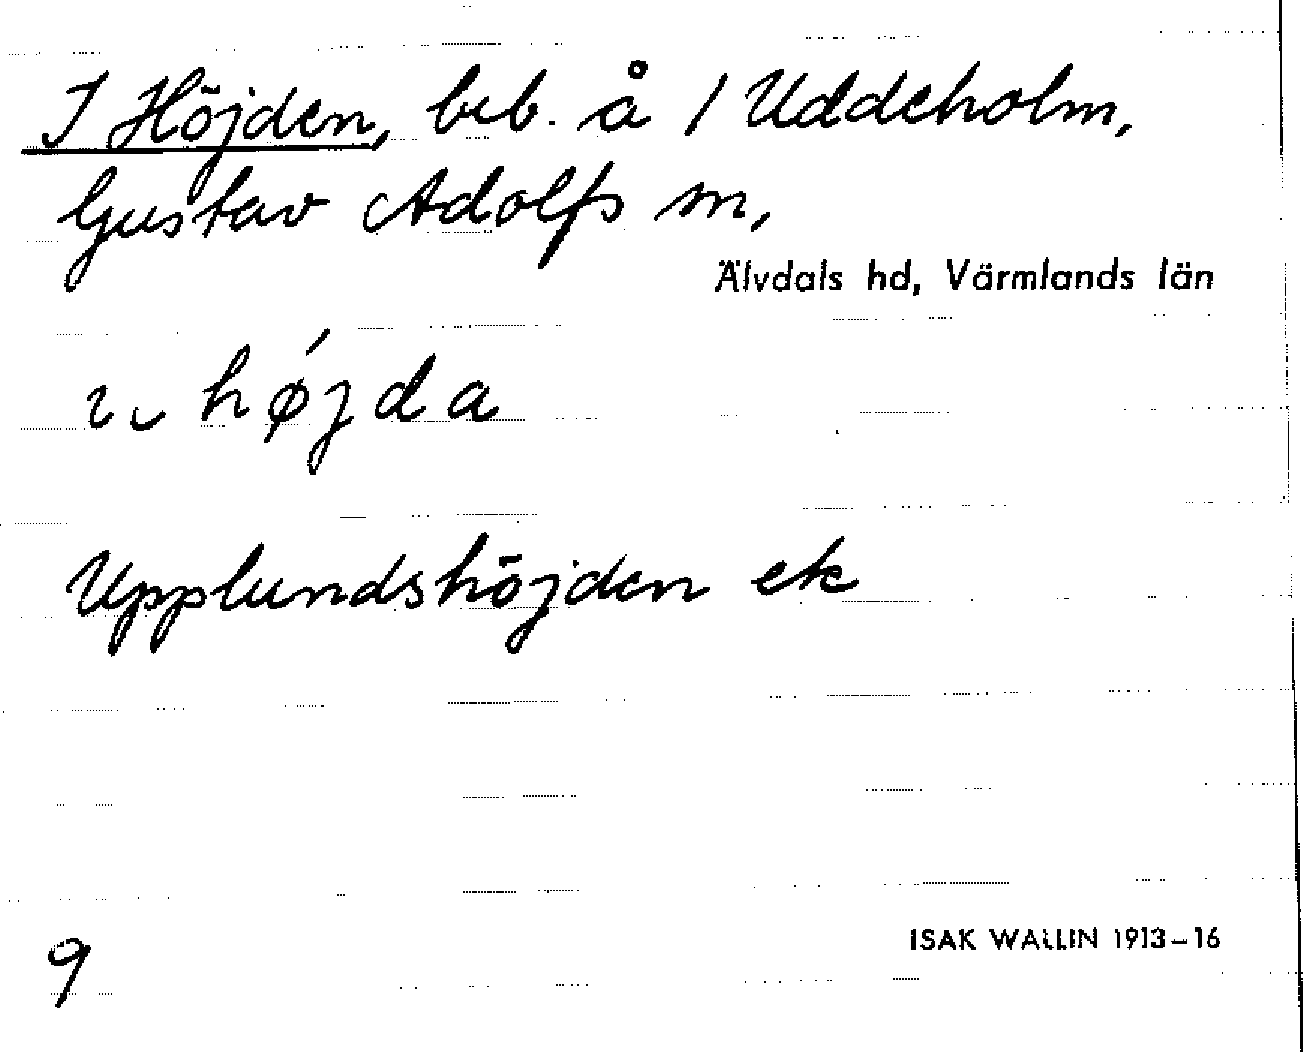 I Höjden, beb. å 1 Uddeholm,
Gustav Adolfs sn,
Älvdals hd, Värmlands län
højda
Upplundshöjden ek
9
ISAK WALLIN 1913–16